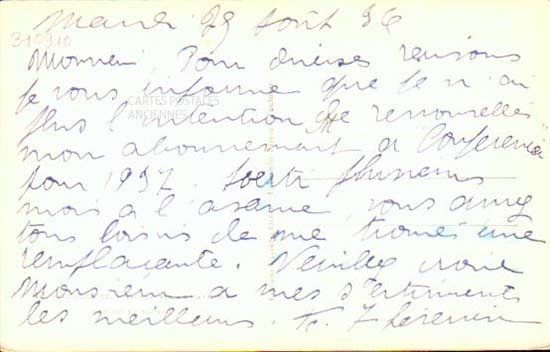 29 Août 36
31090
Monsieur, Pour diverses raisons
je vous informe que je n'ai
CARTES POSTALES
ANCIENNES
plus l'intention de renouveller
mon abonnement à Conferencia
pour 1937.
plusieurs
mois à l'avance, vous aurez
tous loisirs de me trouver une
remplaçante. Veuillez croire
Monsieur à mes sentiments
les meilleurs.